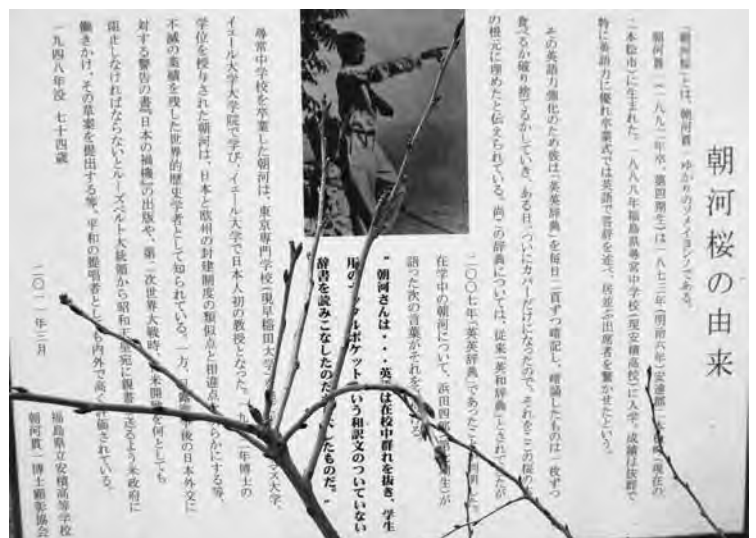 朝河桜の由来
「朝河桜」とは、朝河貫一ゆかりのソメイヨシノである。
朝河貫一(一八九二年卒・第四期生)は一八七三年(明治六年)安達郡二本松町(現在の
二本松市)に生まれた。一八八九年福島県尋常中学校(現安積高校)に入学。成績は抜群で
特に英語力に優れ卒業式では英語で答辞を述べ、居並ぶ出席者を驚かせたという。
その英語力強化のため彼は「英英辞典」を毎日二頁ずつ暗記し、暗誦したものは一枚ずつ
食べるか破り捨てるかしていき、ある日、ついにカバーだけになったので、それをここの桜の
の根元に埋めたと伝えられている。尚、この辞典については、従来「英和辞典」とされていたが
二〇〇七年「英英辞典」であったことが判明した。
在学中の朝河について、浜田四郎 期生)が
語った次の言葉がそれを ける
"朝河さんは・・・英語は在校中群れを抜き、学生
用の ケットという和訳文のついていない
辞書を読みこなしたのだ したものだ。"
尋常中学校を卒業した朝河は、東京専門学校(現早稲田大学) マス大学、
イェール大学大学院で学び、イェール大学で日本人初の教授となった。一九〇二年博士の
学位を授与された朝河は、日本と欧州の封建制度の類似点と相違点 らかにする等、
不滅の業績を残した世界的歴史学者として知られている。一方、日露戦争後の日本外交に
対する警告の書『日本の禍機』の出版や、第二次世界大戦時、日米開戦を何としても
阻止しなければならないとルーズベルト大統領から昭和天皇宛に親書を送るよう米政府に
働きかけ、その草案を提出する等、平和の提唱者としても内外で高く評価されている。
一九四八年没 七十四歳
二〇一一年三月
福島県立安積高等学校
朝河貫一博士顕彰協会